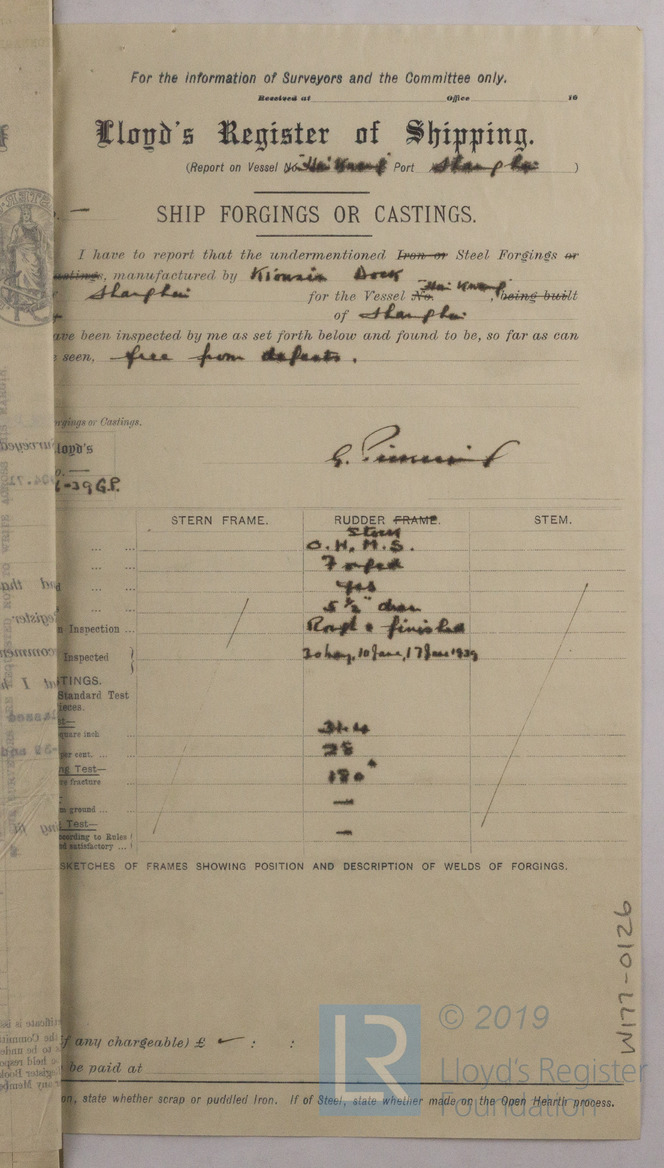 For the information of Surveyors and the Committee only.
Received at Office 19
Lloyd's Register of Shipping.
(Report on Vessel No. "Hai Kwang" Port Shanghai )
SHIP FORGINGS OR CASTINGS.
I have to report that the undermentioned Iron or Steel Forgings or
Castings, manufactured by Kiousin Dock
Shanghai for the Vessel No. "Hai Kwang", being built
of Shanghai
ave been inspected by me as set forth below and found to be, so far as can
seen, free from defects.
rgings or Castings.
loyd's
o. —
6-39 G.P.
STERN FRAME. RUDDER FRAME. STEM.
Stock
O.H.M.S.
Forged
Yes
5½" diam
n Inspection ... Rough & finished
Inspected 30 May, 10 June, 17 June 1939
TINGS.
Standard Test
ieces.
st—
quare inch 31.4
per cent. ... 28
ng Test—
re fracture 180°
m ground ... —
Test—
ccording to Rules
d satisfactory ... —
SKETCHES OF FRAMES SHOWING POSITION AND DESCRIPTION OF WELDS OF FORGINGS.
W1177-0126
f any chargeable) £ : :
be paid at
on, state whether scrap or puddled Iron. If of Steel, state whether made on the Open Hearth process.
LR
© 2019
Lloyd's Register
Foundation